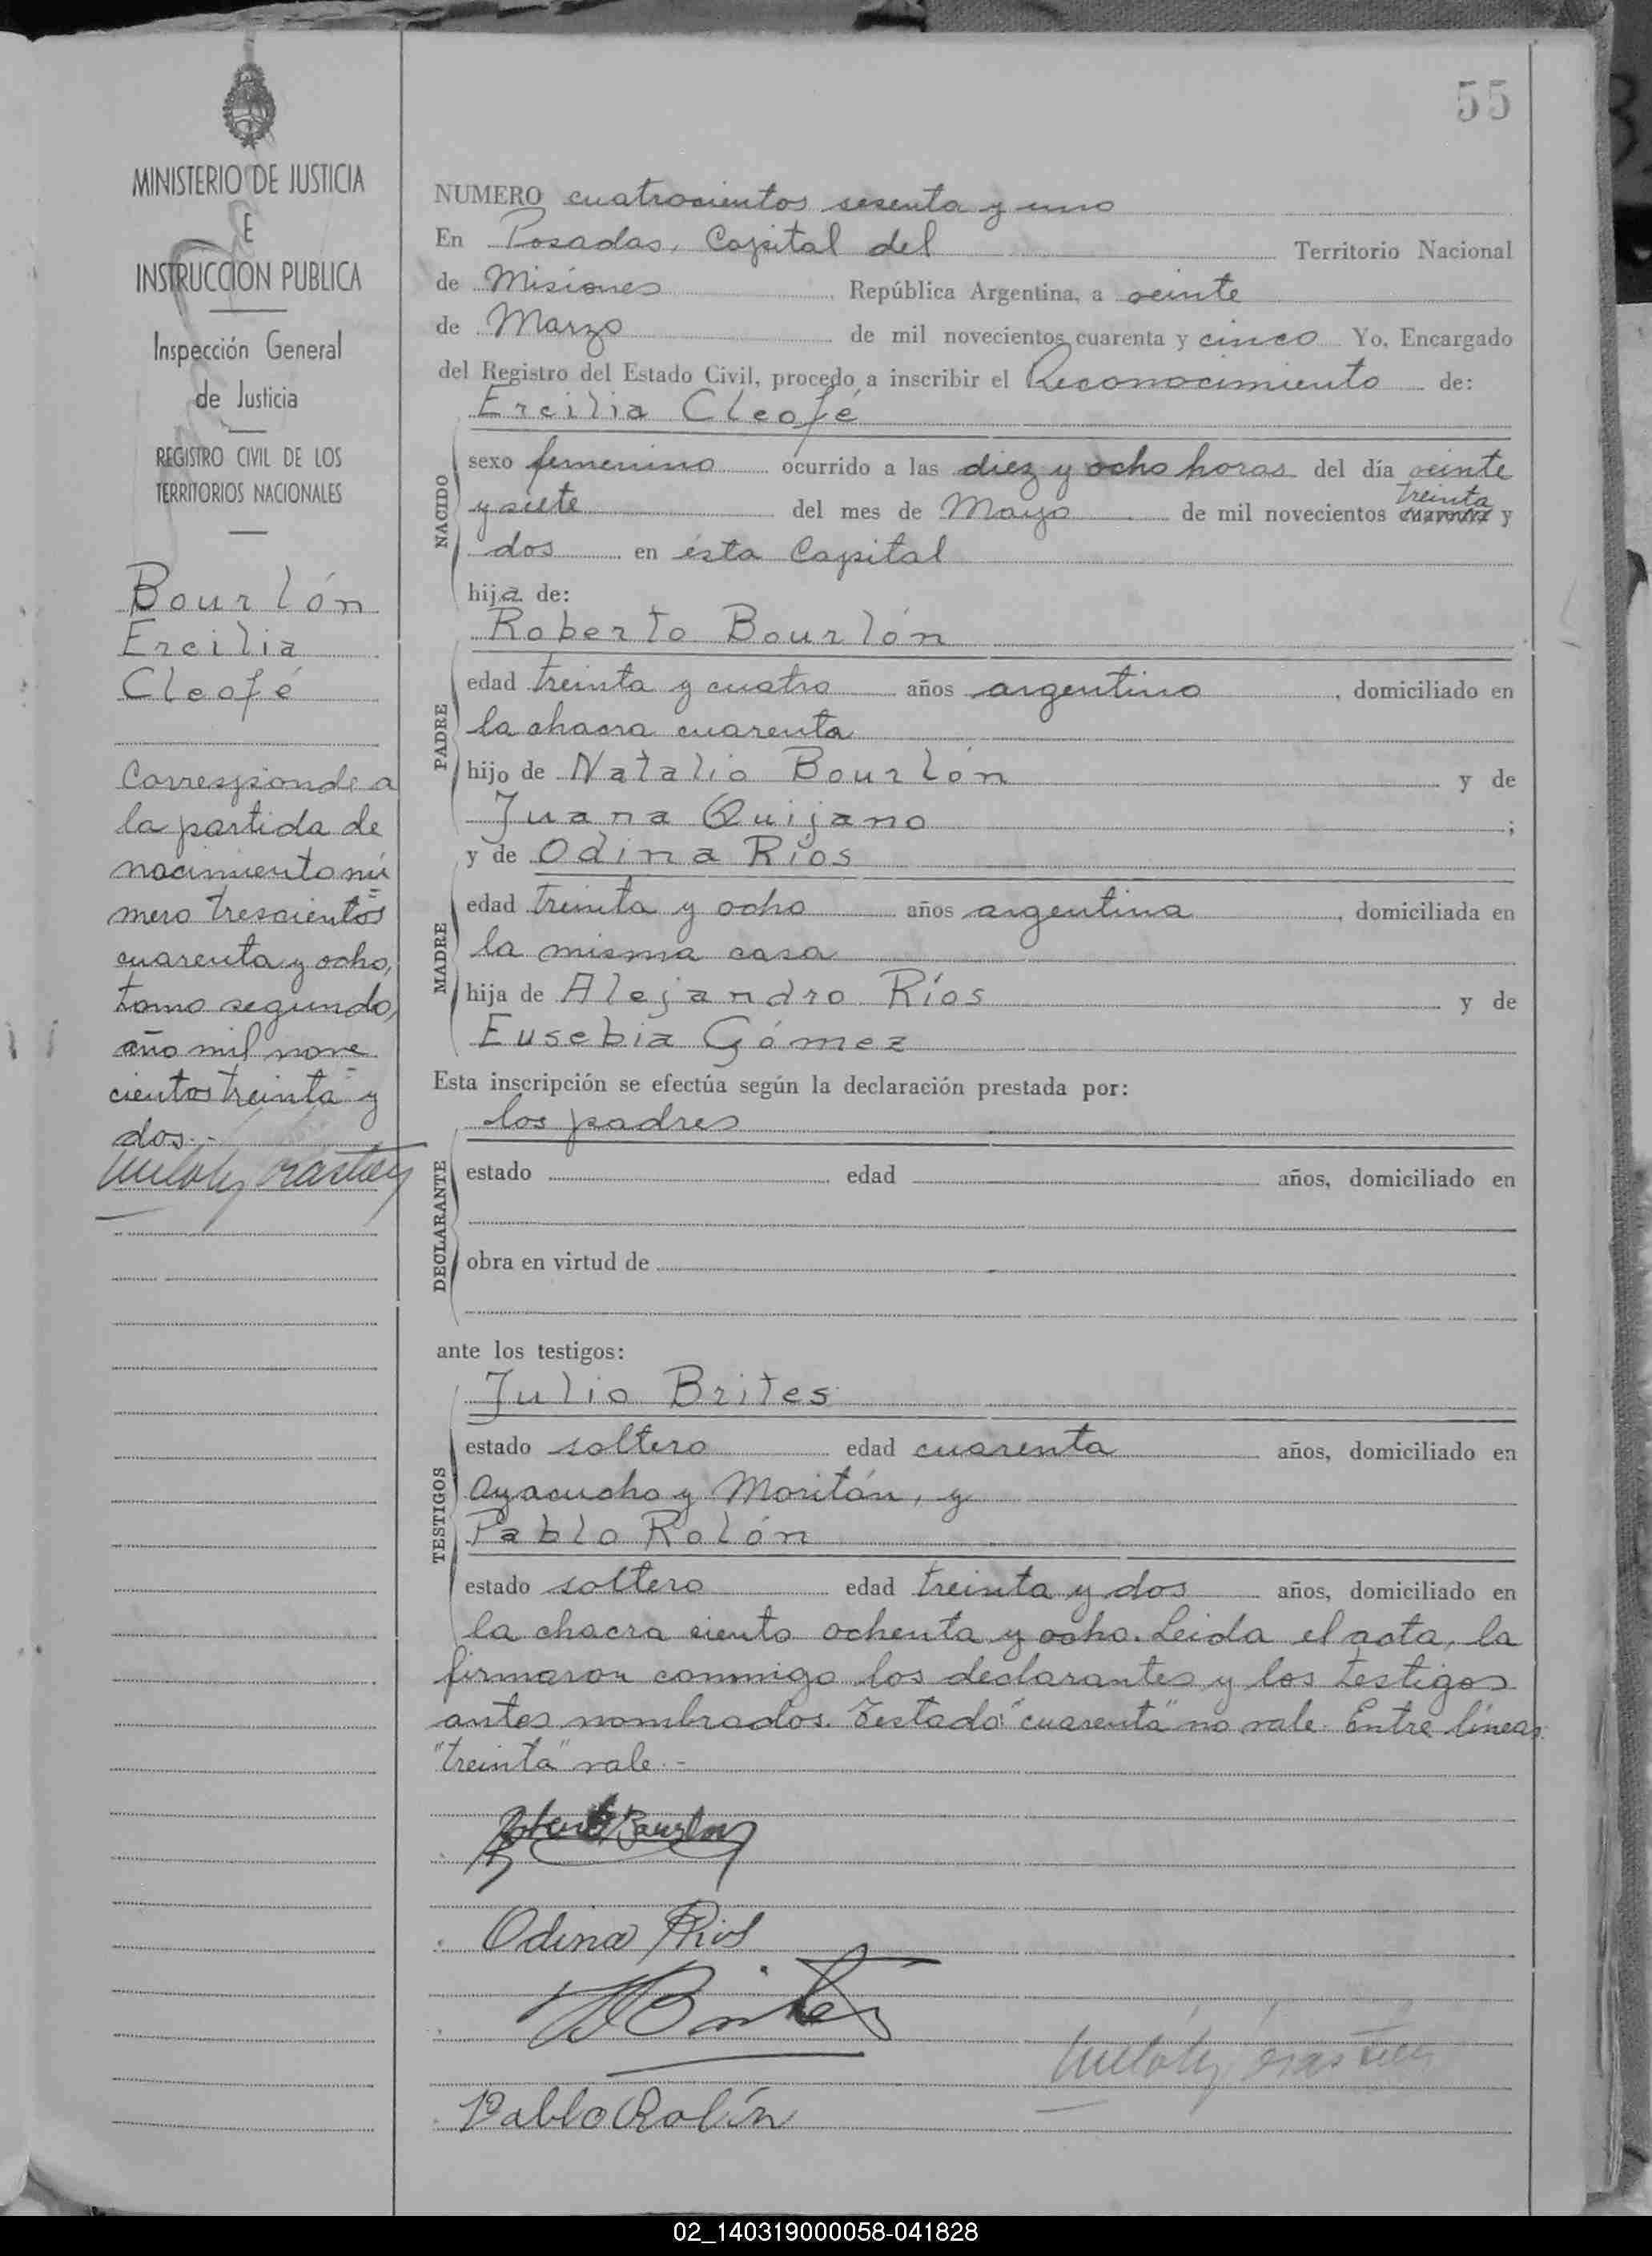 55
MINISTERIO DE JUSTICIA
E
INSTRUCCION PUBLICA
Inspección General
de Justicia
REGISTRO CIVIL DE LOS
TERRITORIOS NACIONALES
Bourlón
Ercilia
Cleofé
Corresponde a
la partida de
nacimiento nú
mero trescientos
cuarenta y ocho,
tomo segundo,
año mil nove
cientos treinta y
dos.-
NUMERO cuatrocientos sesenta y uno
En Posadas, Capital del Territorio Nacional
de Misiones República Argentina, a veinte
de Marzo de mil novecientos cuarenta y cinco Yo, Encargado
del Registro del Estado Civil, procedo a inscribir el Reconocimiento de:
Ercilia Cleofé
NACIDO
sexo femenino ocurrido a las diez y ocho horas del día veinte
treinta
y siete del mes de Mayo de mil novecientos cuarenta y
dos en ésta Capital
hija de:
Roberto Bourlón
PADRE
edad treinta y cuatro años argentino, domiciliado en
la chacra cuarenta
hijo de Natalio Bourlón y de
Juana Quijano ;
y de Odina Ríos
MADRE
edad treinta y ocho años argentina, domiciliada en
la misma casa
hija de Alejandro Ríos y de
Eusebia Gómez
Esta inscripción se efectúa según la declaración prestada por:
los padres
DECLARANTE
estado edad años, domiciliado en
obra en virtud de
ante los testigos:
Julio Brites
TESTIGOS
estado soltero edad cuarenta años, domiciliado en
Ayacucho y Moritán, y
Pablo Rolón
estado soltero edad treinta y dos años, domiciliado en
la chacra ciento ochenta y ocho. Leida el acta, la
firmaron conmigo los declarantes y los testigos
antes nombrados. Testado "cuarenta" no vale. Entre líneas:
"treinta" vale.-
Roberto Bourlon
Odina Rios
J Brites
Pablo Rolón
02_140319000058-041828